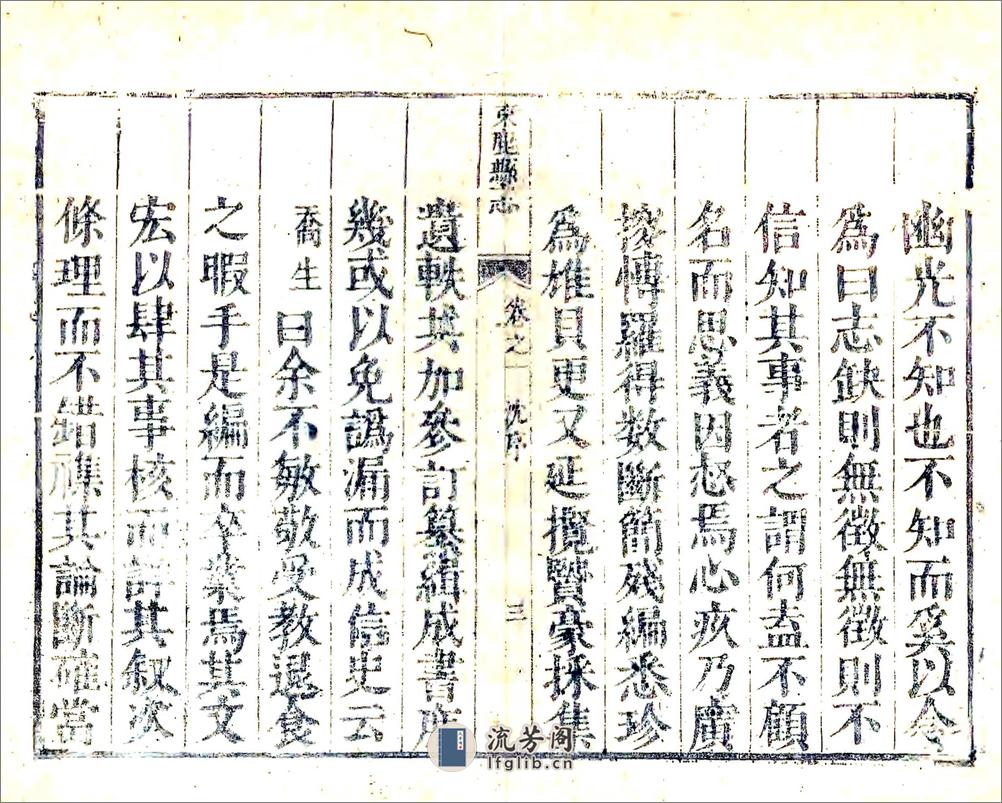 幽光不知也不知而奚以令
爲曰志缺則無徵無徵則不
信知其事者之謂何盍不顧
名而思義因惄焉心疚乃廣
搜博羅得數斷簡殘編悉珍
爲雄貝更又延攬賢豪採集
束鹿縣志
卷之一 沈序 三
遺軼其加參訂纂緝成書庶
幾或以免譌漏而成信史云
喬生曰余不敏敬受教退食
之暇手是編而卒業焉其文
宏以肆其事核而詳其叙次
條理而不錯襍其論斷確當
流芳阁
lfglib.cn